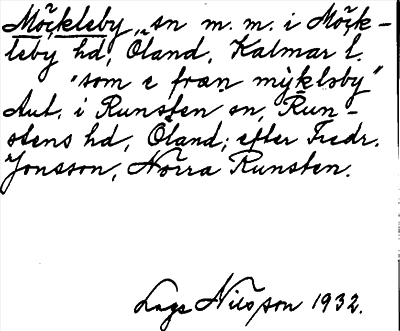 Möckleby, sn m. m. i Möck-
leby hd, Öland, Kalmar l.
"som e fræn mỳkləby"
Ant. i Runsten sn, Run-
stens hd, Öland; efter Fredr.
Jonsson, Norra Runsten.
Lage Nilsson 1932.